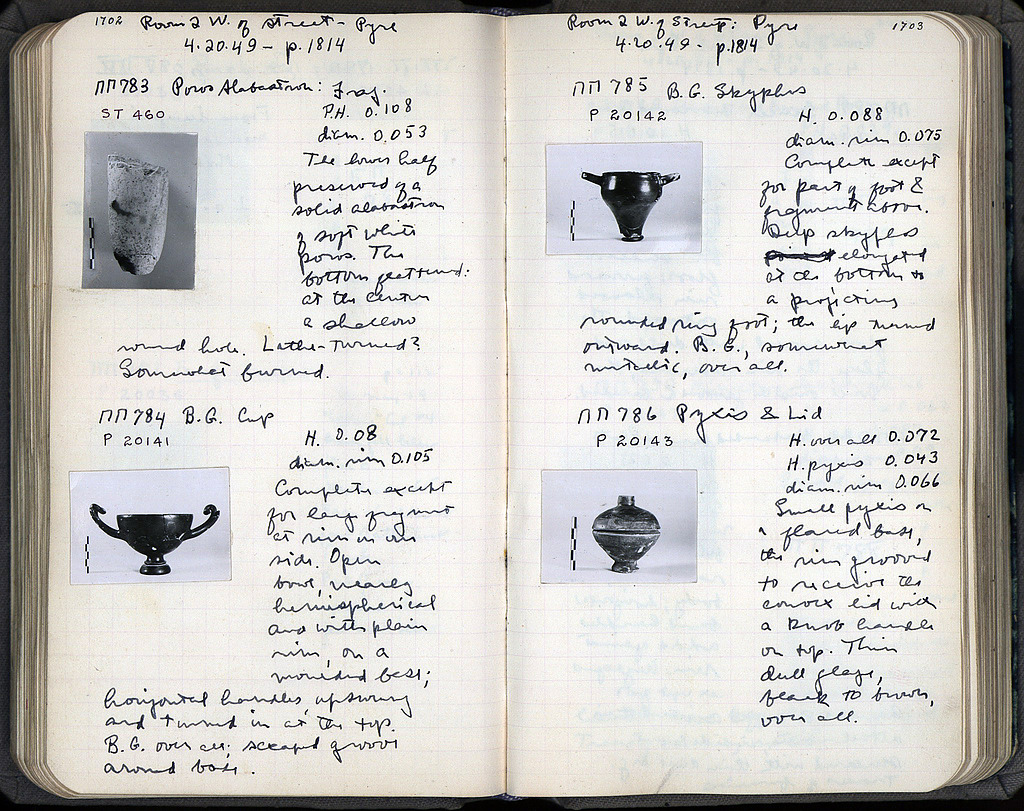 1702 Room 2 W. of Street - Pyre
4.20.49 - p.1814
ΠΠ783 Poros Alabastron: Frag.
ST 460
P.H. 0.108
diam. 0.053
The lower half
preserved of a
solid alabastron
of soft white
poros. The
bottom flattened:
at the center
a shallow
round hole. Lathe-turned?
Somewhat burned.
ΠΠ784 B.G. Cup
P 20141
H. 0.08
diam. rim 0.105
Complete except
for large fragment
at rim on one
side. Open
bowl, nearly
hemispherical
and with plain
rim, on a
moulded base;
horizontal handles upswung
and turned in at the top.
B.G. over all; scraped groove
around base.
Room 2 W. of Street: Pyre 1703
4.20.49 - p.1814
ΠΠ785 B.G. Skyphos
P 20142
H. 0.088
diam. rim 0.075
Complete except
for part of foot &
fragment above.
Deep skyphos
elongated
at the bottom to
a projecting
rounded ring foot; the lip turned
outward. B.G., somewhat
metallic, over all.
ΠΠ786 Pyxis & Lid
P 20143
H. over all 0.072
H. pyxis 0.043
diam. rim 0.066
Small pyxis on
a flared base,
the rim grooved
to receive the
convex lid with
a knob handle
on top. Thin
dull glaze,
black to brown,
over all.